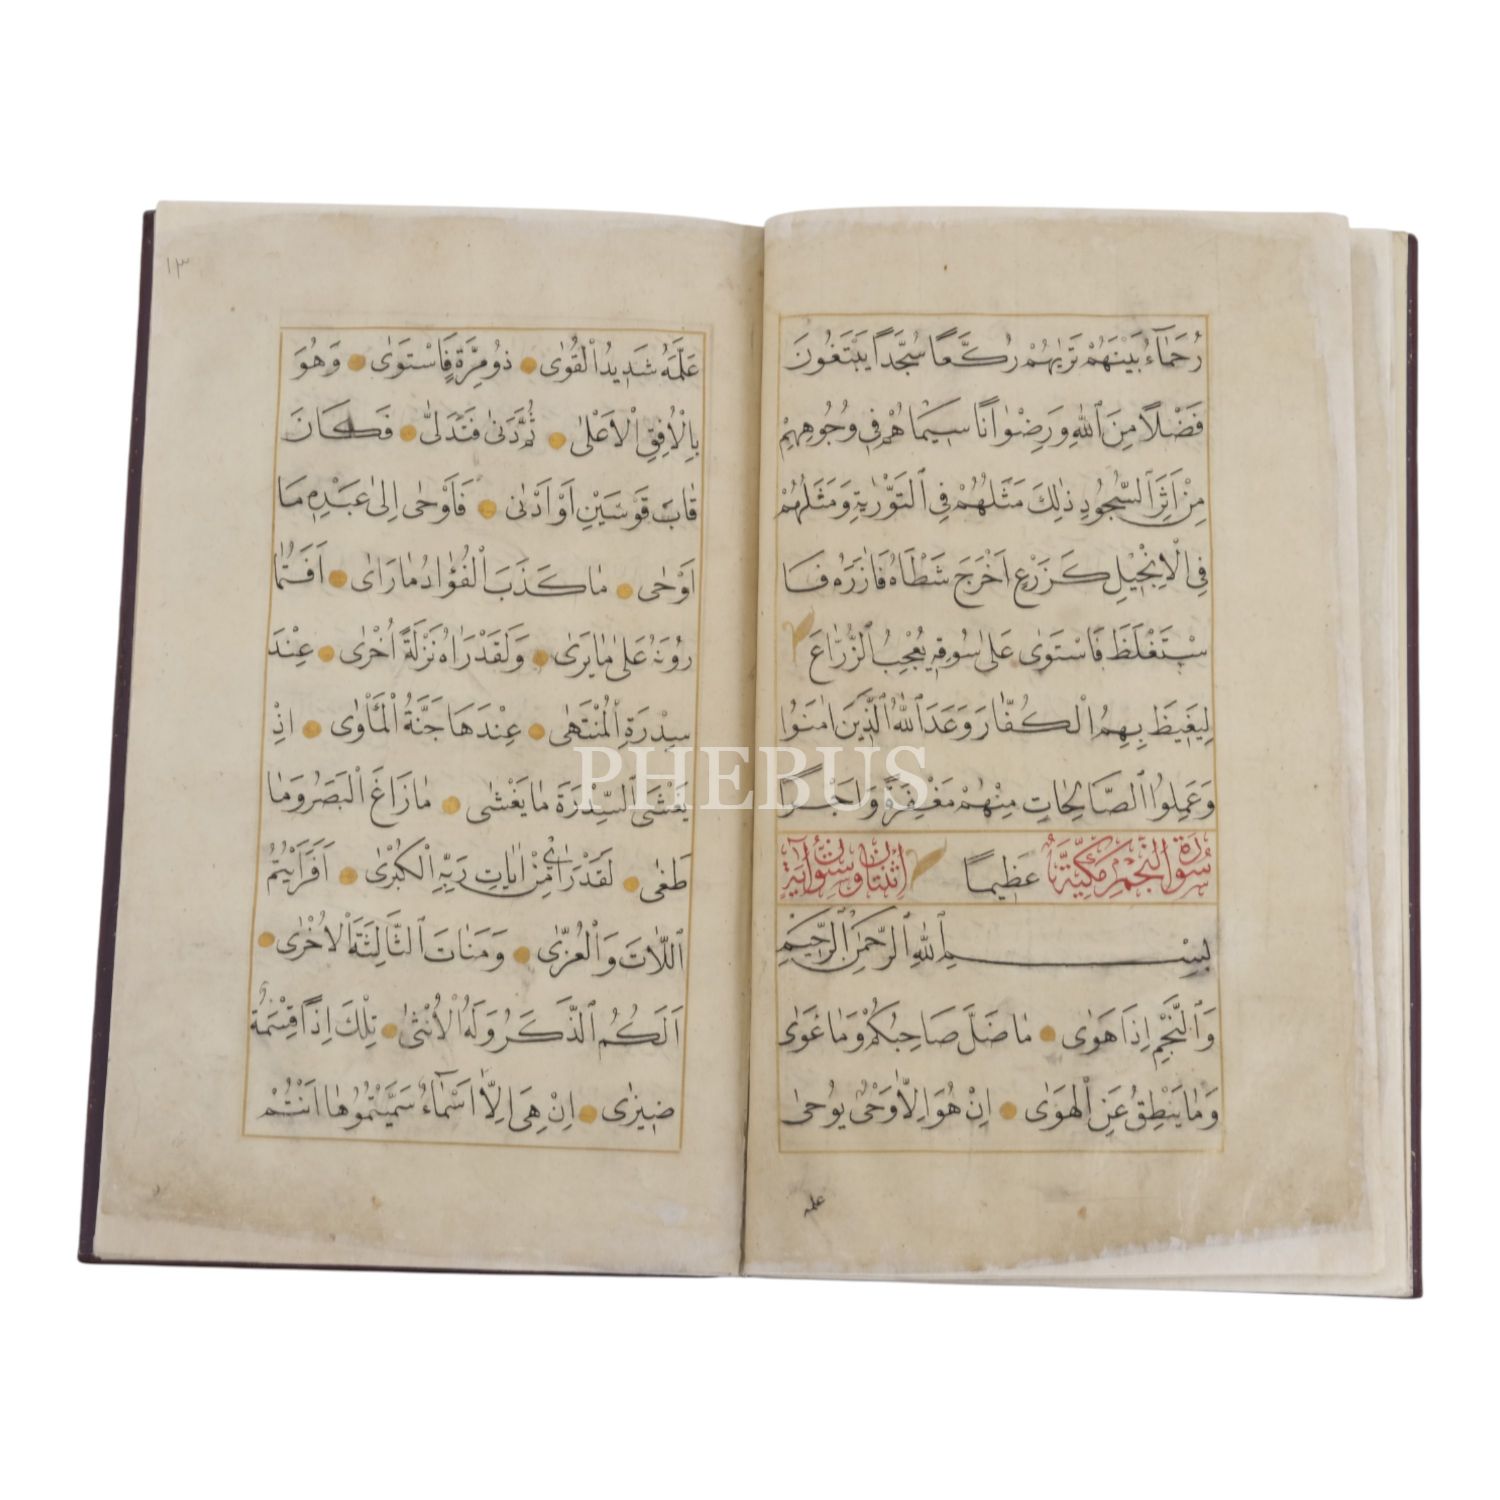 رُحَمَآءُ بَيْنَهُمْ تَرٰيهُمْ رُكَّعًا سُجَّدًا يَبْتَغُونَ
فَضْلًا مِنَ ٱللهِ وَرِضْوٰانًا سِيمٰاهُمْ فِي وُجُوهِهِمْ
مِنْ اَثَرِ ٱلسُّجُودِ ذٰلِكَ مَثَلُهُمْ فِي ٱلتَّوْرٰيةِ وَمَثَلُهُمْ
فِي ٱلْاِنْجٖيلِ كَزَرْعٍ اَخْرَجَ شَطْاَهُ فَاٰزَرَهُ فَا
سْتَغْلَظَ فَاسْتَوٰى عَلٰى سُوقِهِ يُعْجِبُ ٱلزُّرّٰاعَ
لِيَغٖيظَ بِهِمُ ٱلْكُفّٰارَ وَعَدَ ٱللهُ ٱلَّذٖينَ اٰمَنُوا
وَعَمِلُوا ٱلصَّالِحٰاتِ مِنْهُمْ مَغْفِرَةً وَاَجْرًا
سُورَةُ ٱلنَّجْمِ مَكِّيَّةٌ عَظٖيمًا اِثْنَتَانِ وَسِتُّونَ اٰيَةً
بِسْمِ ٱللهِ ٱلرَّحْمٰنِ ٱلرَّحٖيمِ
وَٱلنَّجْمِ اِذَا هَوٰى مٰا ضَلَّ صَاحِبُكُمْ وَمٰا غَوٰى
وَمٰا يَنْطِقُ عَنِ ٱلْهَوٰى اِنْ هُوَ اِلّٰا وَحْيٌ يُوحٰى
علمه
١٣
عَلَّمَهُ شَدٖيدُ ٱلْقُوٰى ذُو مِرَّةٍ فَاسْتَوٰى وَهُوَ
بِالْاُفُقِ الْاَعْلٰى ثُمَّ دَنٰى فَتَدَلّٰى فَكَانَ
قٰابَ قَوْسَيْنِ اَوْ اَدْنٰى فَاَوْحٰى اِلٰى عَبْدِهٖ مَا
اَوْحٰى مٰا كَذَبَ ٱلْفُؤٰادُ مٰا رَاٰى اَفَتُمٰا
رُونَهُ عَلٰى مٰا يَرٰى وَلَقَدْ رَاٰهُ نَزْلَةً اُخْرٰى عِنْدَ
سِدْرَةِ ٱلْمُنْتَهٰى عِنْدَهَا جَنَّةُ ٱلْمَأْوٰى اِذْ
يَغْشَى ٱلسِّدْرَةَ مٰا يَغْشٰى مٰا زَاغَ ٱلْبَصَرُ وَمٰا
طَغٰى لَقَدْ رَاٰى مِنْ اٰيَاتِ رَبِّهِ ٱلْكُبْرٰى اَفَرَاَيْتُمُ
ٱللّٰاتَ وَٱلْعُزّٰى وَمَنَاتَ ٱلثَّالِثَةَ ٱلْاُخْرٰى
اَلَكُمُ ٱلذَّكَرُ وَلَهُ ٱلْاُنْثٰى تِلْكَ اِذًا قِسْمَةٌ
ضٖيزٰى اِنْ هِيَ اِلّٰا اَسْمَآءٌ سَمَّيْتُمُوهٰا اَنْتُمْ
PHEBUS